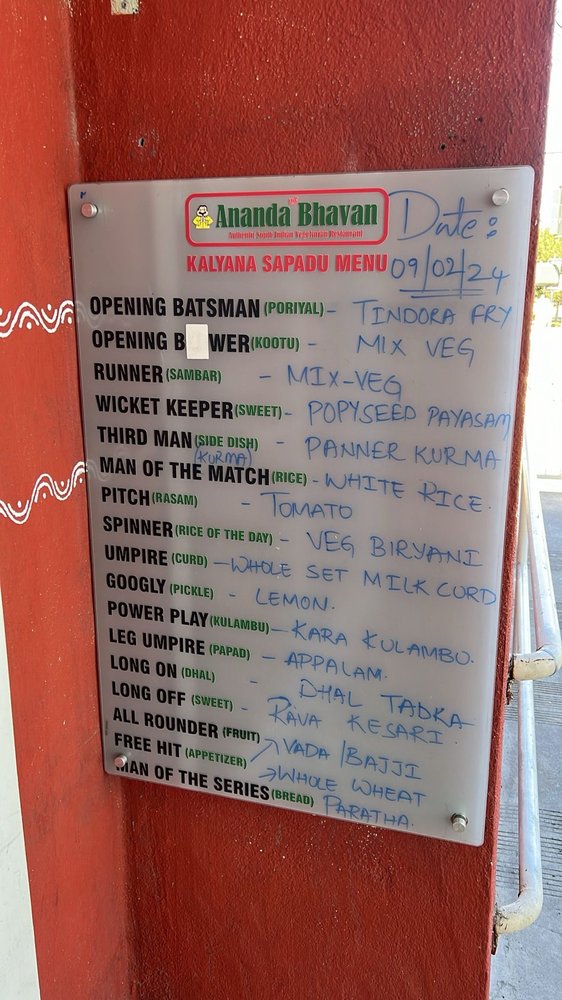 Ananda Bhavan
Authentic South Indian Vegetarian Restaurant
KALYANA SAPADU MENU
Date:
09/02/24
OPENING BATSMAN (PORIYAL) - TINDORA FRY
OPENING B WER (KOOTU) - MIX VEG
RUNNER (SAMBAR) - MIX-VEG
WICKET KEEPER (SWEET) - POPYSEED PAYASAM
THIRD MAN (SIDE DISH) - PANNER KURMA
(KURMA)
MAN OF THE MATCH (RICE) - WHITE RICE.
PITCH (RASAM) - TOMATO
SPINNER (RICE OF THE DAY) - VEG BIRYANI
UMPIRE (CURD) - WHOLE SET MILK CURD
GOOGLY (PICKLE) - LEMON.
POWER PLAY (KULAMBU) - KARA KULAMBU.
LEG UMPIRE (PAPAD) - APPALAM.
LONG ON (DHAL) - DHAL TADKA
LONG OFF (SWEET) - RAVA KESARI
ALL ROUNDER (FRUIT)
FREE HIT (APPETIZER) → VADA / BAJJI
MAN OF THE SERIES (BREAD) → WHOLE WHEAT
PARATHA.